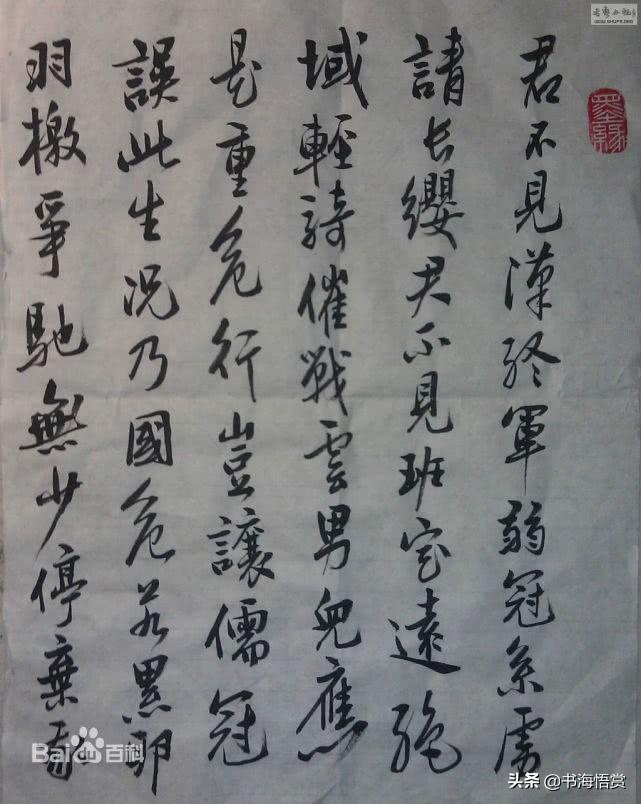 君不見漢終軍弱冠系虜
請長纓君不見班定遠絕
域輕騎催戰雲男兒應
是重危行豈讓儒冠
誤此生况乃國危若累卵
羽檄爭馳無少停棄我
墨緣
Bai百科
头条 @书海悟赏